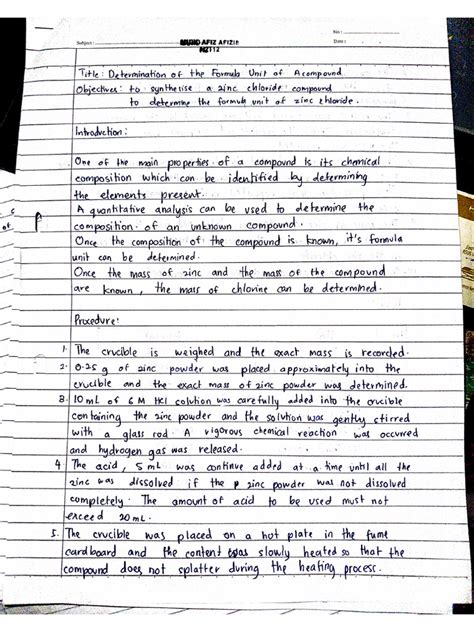 No :
Subject : MUHD AFIZ AFIZIE Date :
Title : Determination of the Formula Unit of A compound
Objectives : to synthesise a zinc chloride compound
to determine the formula unit of zinc chloride.
Introduction :
One of the main properties of a compound is its chemical
composition which can be identified by determining
the elements present.
A quantitative analysis can be used to determine the
composition of an unknown compound.
Once the composition of the compound is known, it's formula
unit can be determined.
Once the mass of zinc and the mass of the compound
are known, the mass of chlorine can be determined.
Procedure :
1. The crucible is weighed and the exact mass is recorded.
2. 0.25 g of zinc powder was placed approximately into the
crucible and the exact mass of zinc powder was determined.
3. 10 mL of 6 M HCl solution was carefully added into the crucible
containing the zinc powder and the solution was gently stirred
with a glass rod. A vigorous chemical reaction was occured
and hydrogen gas was released.
4 The acid, 5 mL was continue added at a time until all the
zinc was dissolved if the zinc powder was not dissolved
completely. The amount of acid to be used must not
exceed 20 mL.
5. The crucible was placed on a hot plate in the fume
cardboard and the content was slowly heated so that the
compound does not splatter during the heating process.